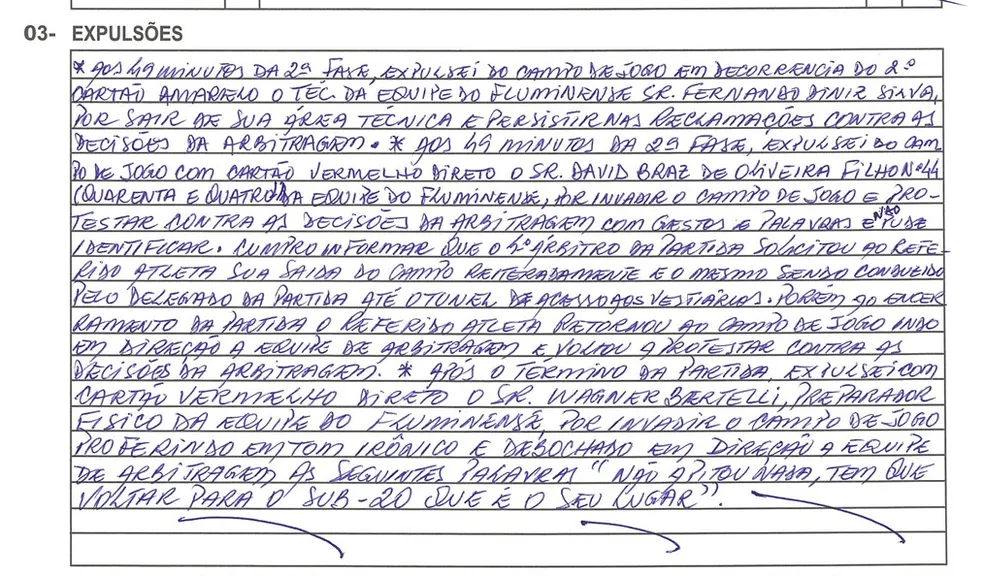 03- EXPULSÕES
* AOS 49 MINUTOS DA 2ª FASE, EXPULSEI DO CAMPO DE JOGO EM DECORRENCIA DO 2º
CARTÃO AMARELO O TÉC. DA EQUIPE DO FLUMINENSE SR. FERNANDO DINIZ SILVA,
POR SAIR DE SUA ÁREA TÉCNICA E PERSISTIR NAS RECLAMAÇÕES CONTRA AS
DECISÕES DA ARBITRAGEM. * AOS 49 MINUTOS DA 2ª FASE, EXPULSEI DO CAM
PO DE JOGO COM CARTÃO VERMELHO DIRETO O SR. DAVID BRAZ DE OLIVEIRA FILHO Nº 44
(QUARENTA E QUATRO) DA EQUIPE DO FLUMINENSE, POR INVADIR O CAMPO DE JOGO E PRO-
TESTAR CONTRA AS DECISÕES DA ARBITRAGEM COM GESTOS E PALAVRAS E NÃO PUDE
IDENTIFICAR. CUMPRO INFORMAR QUE O 4º ÁRBITRO DA PARTIDA SOLICITOU AO REFE-
RIDO ATLETA SUA SAIDA DO CAMPO REITERADAMENTE E O MESMO SENDO CONDUZIDO
PELO DELEGADO DA PARTIDA ATÉ O TUNEL DE ACESSO AOS VESTIÁRIOS. PORÉM AO ENCER
RAMENTO DA PARTIDA O REFERIDO ATLETA RETORNOU AO CAMPO DE JOGO INDO
EM DIREÇÃO A EQUIPE DE ARBITRAGEM E VOLTOU A PROTESTAR CONTRA AS
DECISÕES DA ARBITRAGEM. * APÓS O TÉRMINO DA PARTIDA, EXPULSEI COM
CARTÃO VERMELHO DIRETO O SR. WAGNER BERTELLI, PREPARADOR
FISICO DA EQUIPE DO FLUMINENSE, POR INVADIR O CAMPO DE JOGO
PROFERINDO EM TOM IRÔNICO E DEBOCHADO EM DIREÇÃO A EQUIPE
DE ARBITRAGEM AS SEGUINTES PALAVRAS "NÃO APITOU NADA, TEM QUE
VOLTAR PARA O SUB-20 QUE É O SEU LUGAR".